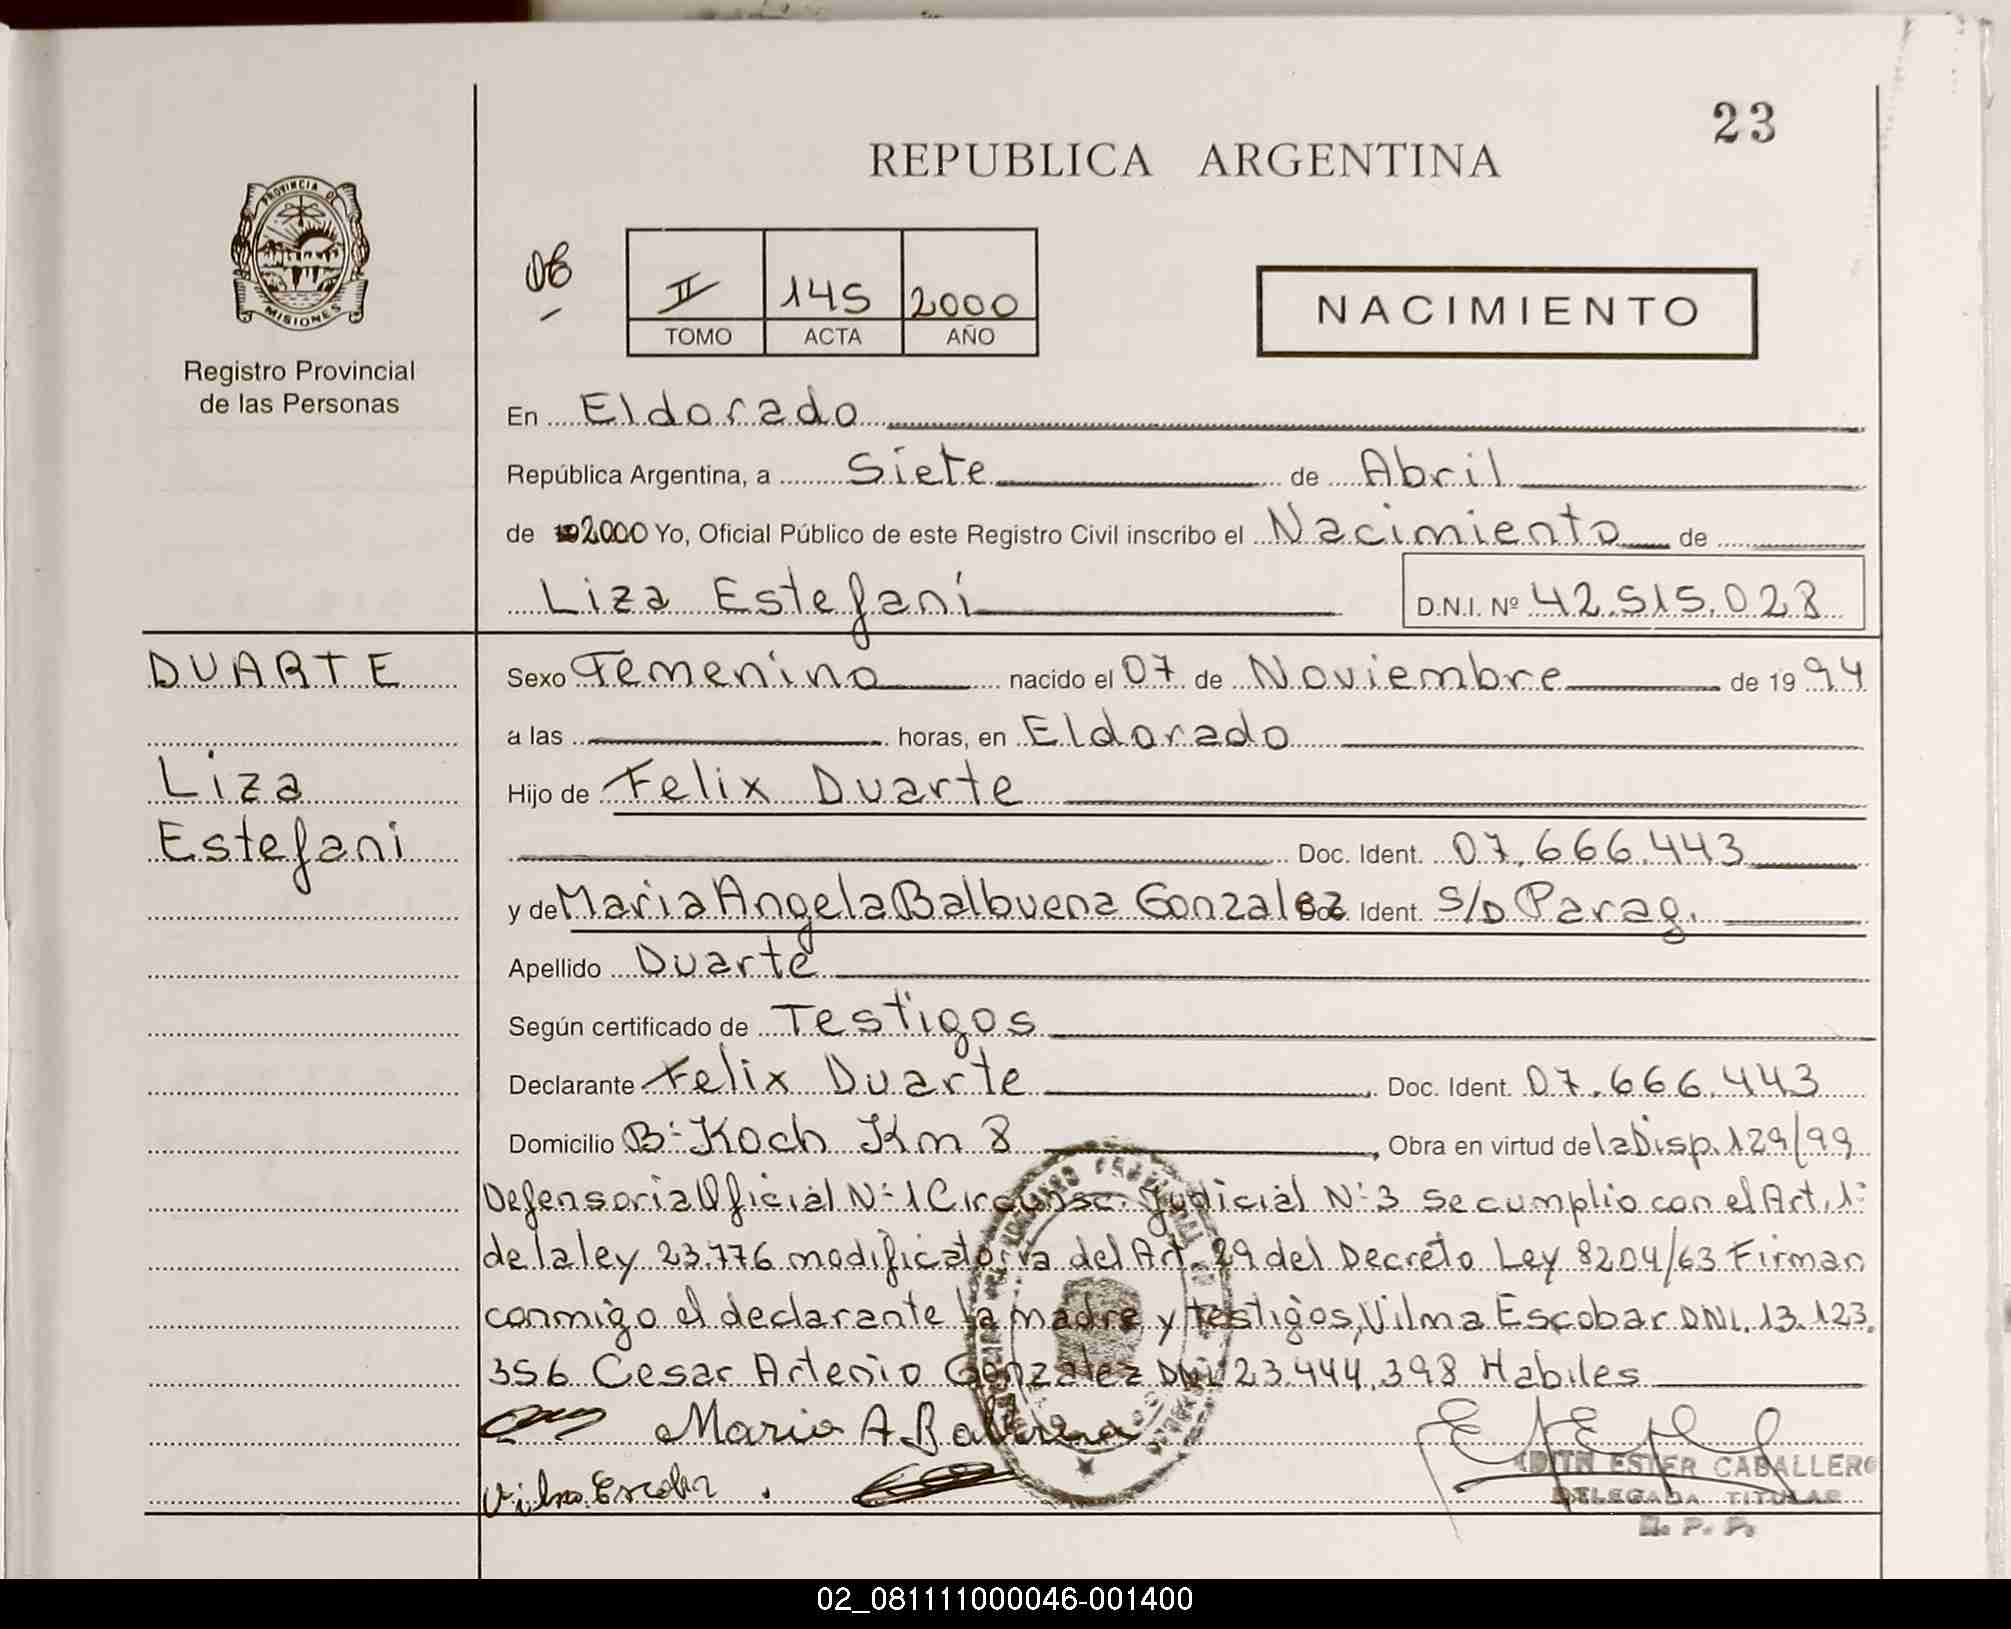 23
REPUBLICA ARGENTINA
PROVINCIA DE
MISIONES
Registro Provincial
de las Personas
II 145 2000
TOMO ACTA AÑO
NACIMIENTO
En Eldorado
República Argentina, a Siete de Abril
de 2000 Yo, Oficial Público de este Registro Civil inscribo el Nacimiento de
Liza Estefani D.N.I. Nº 42.515.028
DUARTE
Liza
Estefani
Sexo Femenino nacido el 07 de Noviembre de 1994
a las horas, en Eldorado
Hijo de Felix Duarte
Doc. Ident. 07.666.443
y de Maria Angela Balbuena Gonzalez Doc. Ident. S/D Parag.
Apellido Duarte
Según certificado de Testigos
Declarante Felix Duarte Doc. Ident. 07.666.443
Domicilio Bº Koch Km 8, Obra en virtud de la Disp. 129/99
Defensoria Oficial Nº 1 Circunsc. Judicial Nº 3 se cumplio con el Art. 1º
de la ley 23.776 modificatoria del Art. 29 del Decreto Ley 8204/63 Firman
conmigo el declarante la madre y testigos, Vilma Escobar DNI. 13.123.
356 Cesar Artenio Gonzalez DNI 23.444.398 Habiles
Maria A. Balbuena
Vilma Escobar
EDITH ESTER CABALLERO
DELEGADA TITULAR
R. P. P.
02_081111000046-001400